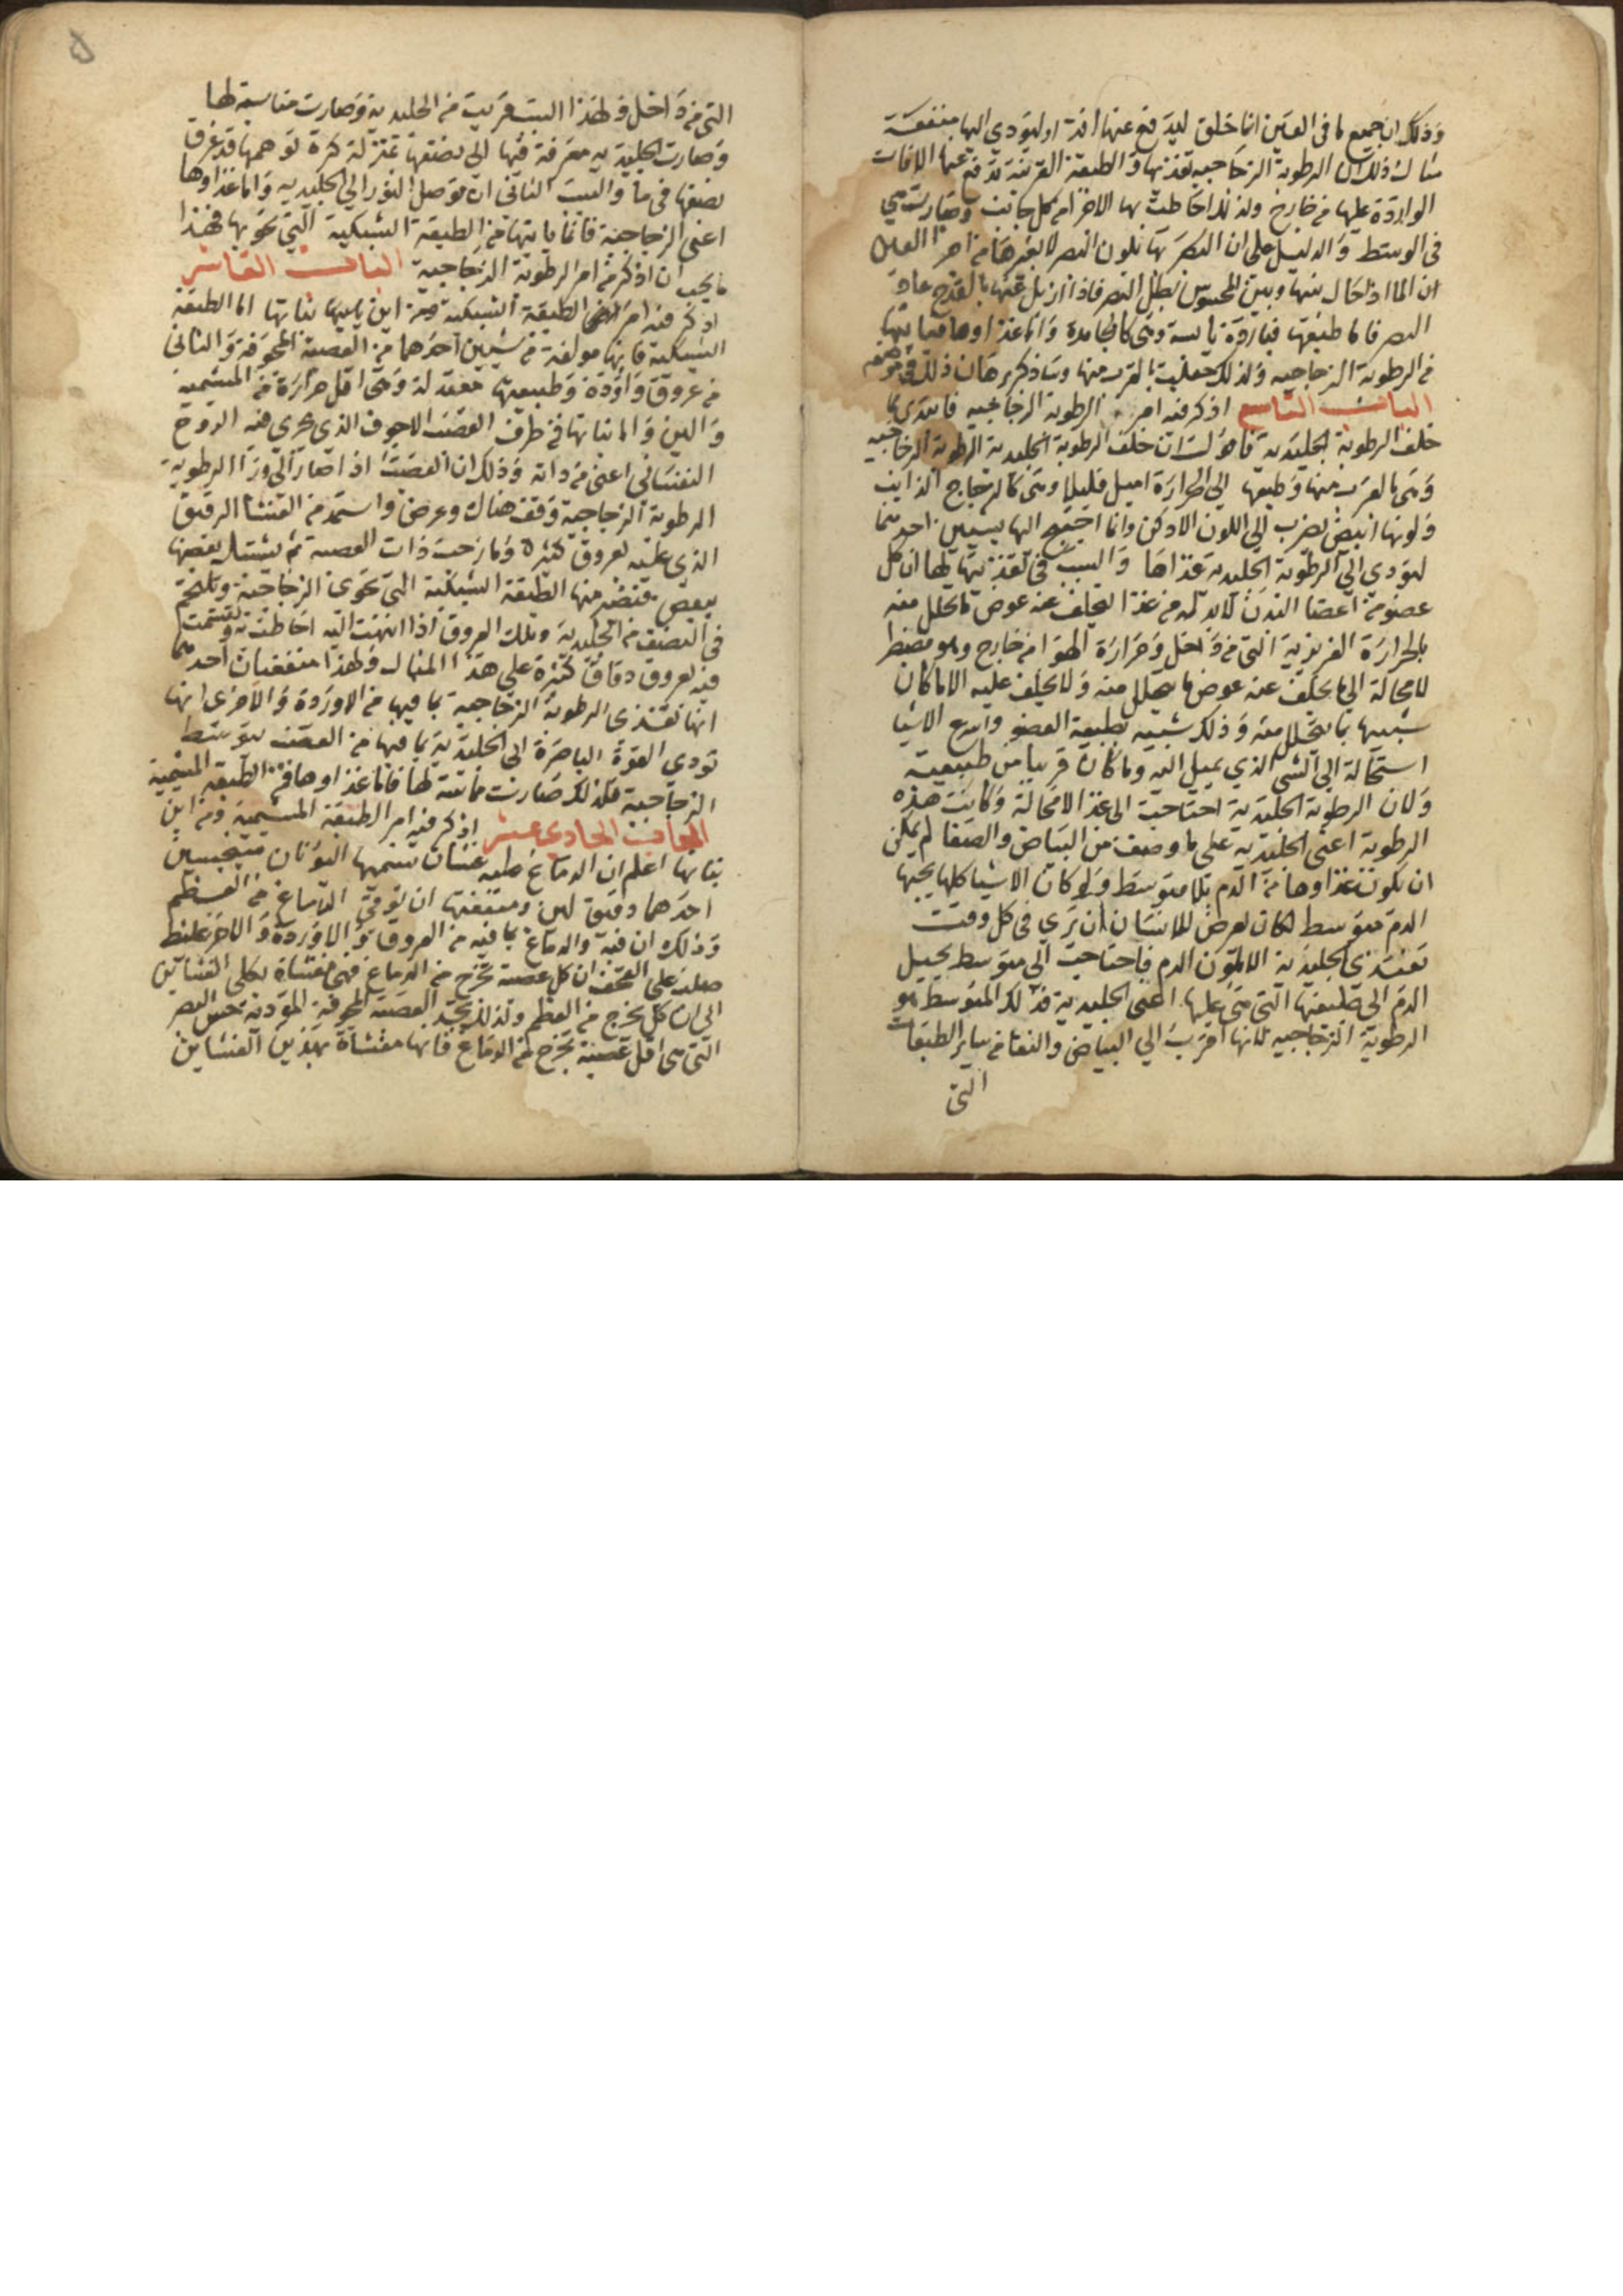 وذلك ان جميع ما في العين انما خلق ليدفع عنها افة او ليؤدي اليها منفعة
مثال ذلك ان الرطوبة الزجاجيه تغذيها والطبقة القرنية تدفع عنها الافات
الواردة عليها من خارج ولذلك احاطت بها الاخر من كل جانب وصارت هي
في الوسط والدليل على ان البصر بها يكون البصر لا بغيرها من اجزا العين
ان الما اذا حال بينها وبين المحسوس بطل البصر فاذا ازيل عنها بالقدح عاد
البصر فاما طبعها فباردة يابسة وهي كالجامدة واما غذاوها فياتيها
من الرطوبة الزجاجيه ولذلك جعلت بالقرب منها وساذكر برهان ذلك في موضعه
الباب التاسع اذكر فيه امر الرطوبة الزجاجيه فابتدي بما
خلف الرطوبة الجليدية فاقول ان خلف الرطوبة الجليدية الرطوبة الزجاجيه
وهي بالقرب منها وطبعها الي الحرارة اميل قليلا وهي كالزجاج الذايب
ولونها ابيض يضرب الي اللون الادكن وانما احتيج اليها لسببين احدهما
ليودي الي الرطوبة الجليدية غذاها والسبب في تغذيتها لها ان كل
عضو من اعضا البدن لابد له من غذا يخلف عنه عوض ما تحلل منه
بالحرارة الغريزية التي من داخل وحرارة الهوا من خارج وهو مضطر
لا محالة الي ما يخلف عنه عوض ما يتحلل منه ولا يخلف عليه الا ما كان
شبيها بما يتحلل منه وذلك شبيه بطبيعة العضو واسرع الاشيا
استحالة الي الشي الذي يميل اليه وما كان قريبا من طبيعته
ولان الرطوبة الجليدية احتاجت الى غذا لا محالة وكانت هذه
الرطوبة اعني الجليدية على ما وصفت من البياض والصفا لم يمكن
ان يكون غذاوها من الدم بلا متوسط ولو كان الاشيا كلها يجيها
الدم متوسط لكان يعرض للانسان ان يري في كل وقت
تغتذي الجليدية الالون الدم فاحتاجت الي متوسط يحيل
الدم الى طبيعتها التي هي عليها اعني الجليدية فذلك المتوسط هو
الرطوبة الزجاجيه لانها اقرب الي البياض والنقا من ساير الطبقات
التي
التي من داخل فلهذا السبب قربت من الجليدية وصارت مناسبة لها
وصارت الجليدية مغرقة فيها الي نصفها بمنزلة كرة توهمها قد غرق
نصفها في ما والسبب الثاني ان توصل النور الي الجليديه واما غذاوها
اعني الزجاجية فانما ياتيها من الطبقة الشبكية التي تحويها فهذا
ما يجب ان اذكر من امر الرطوبة الزجاجية الباب العاشر
اذكر فيه امر الطبقة الشبكية ومن اين نباتها اما الطبقة
الشبكية فانها مولفة من شيين احدهما من العصبة المجوفة والثاني
من عروق واوردة وطبيعتها معتدلة وهي اقل حرارة من المشيمية
والين واما نباتها فمن طرف العصب الاجوف الذي يجري فيه الروح
النفساني اعني من ذاته وذلك ان العصب اذا صار الي ورا الرطوبة
الرطوبة الزجاجية وقف هناك وعرض واستمد من الغشا الرقيق
الذي عليه لعروق كثيرة ومازجت ذات العصبة ثم يشتبك بعضها
ببعض فتصير منها الطبقة الشبكية التي تحوي الزجاجية وتلتحم
في النصف من الجليدية وتلك العروق اذا انتهت اليه احاطت به وانقسمت
فيه لعروق دقاق كثيرة علي هذا المثال ولهذا منفعتان احدهما
انها تغذي الرطوبة الزجاجية بما فيها من الاوردة والاخرى انها
تودي القوة الباصرة الى الجليدية بما فيها من العصب بتوسط
الزجاجية فلذلك صارت مماسة لها فاما غذاوها فمن الطبقة المشيمية
الباب الحادي عشر اذكر فيه امر الطبقة المشيمية ومن اين
نباتها اعلم ان الدماغ عليه غشاان تسميهما اليونان
احدهما دقيق لين ومنفعته ان توقي الدماغ من العظم
وذلك ان فيه والدماغ بما فيه من العروق والاوردة والاخر غليظ
صلد على القحف ان كل عصبة تخرج من الدماغ فهي مغشاة بكلي الغشاين
الي ان كل يخرج من العظم ولذلك تجد العصبة المجوفة المؤدية حس البصر
التي هي اقل عصبة تخرج من الدماغ فانها مغشاة بهذين الغشاين